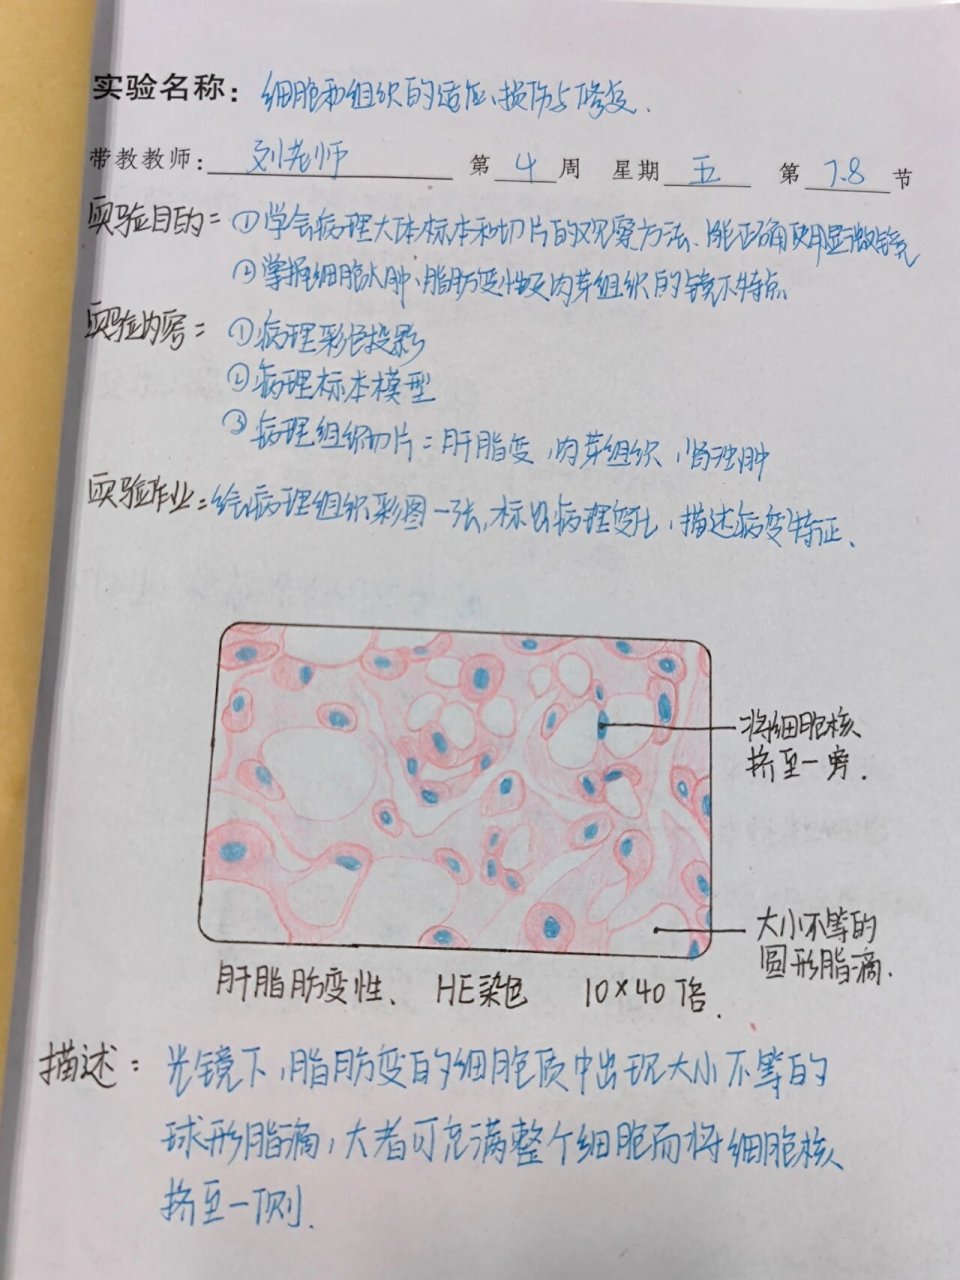 实验名称：细胞和组织的适应、损伤与修复.
带教教师：刘老师 第4周 星期五 第7.8节
实验目的：①学会病理大体标本和切片的观察方法、能正确使用显微镜
②掌握细胞水肿、脂肪变性及肉芽组织的镜下特点
实验内容：①病理彩色投影
②病理标本模型
③病理组织切片：肝脂变，肉芽组织，肾浊肿
实验作业：绘病理组织彩图一张，标出病理变化，描述病变特征、
将细胞核
挤至一旁.
大小不等的
圆形脂滴.
肝脂肪变性、 HE染色 10×40倍.
描述：光镜下，脂肪变的细胞质中出现大小不等的
球形脂滴，大者可充满整个细胞而将细胞核
挤至一侧.